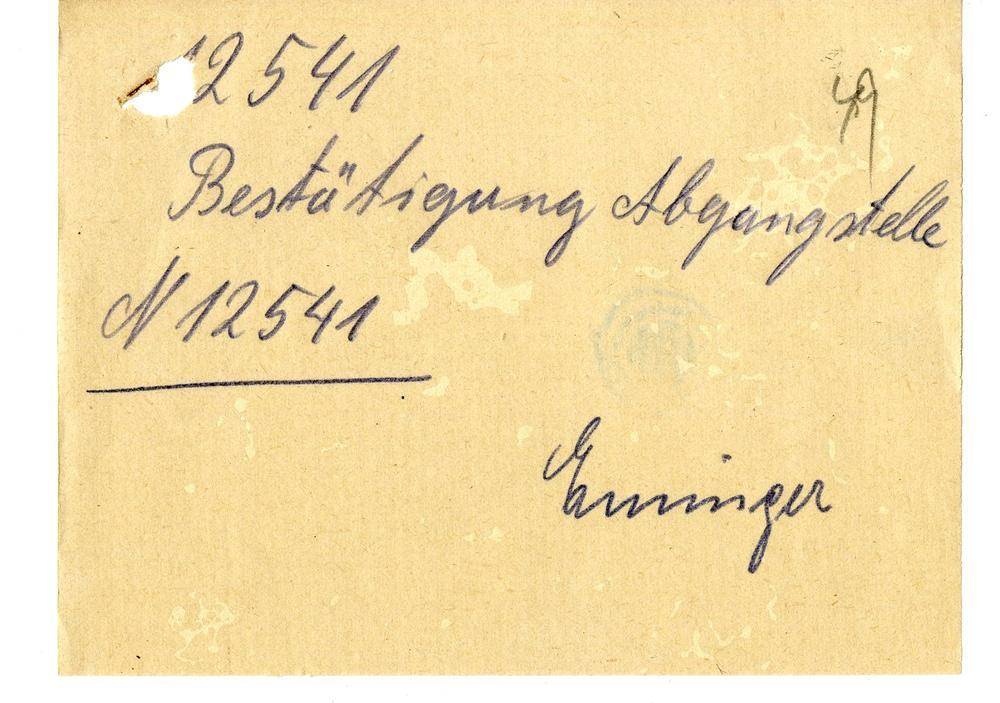 12541
49
Bestätigung Abgangstelle
N 12541
Emminger